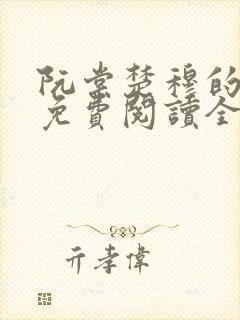 阮棠楚穆的
免費閱讀全
亓孝偉